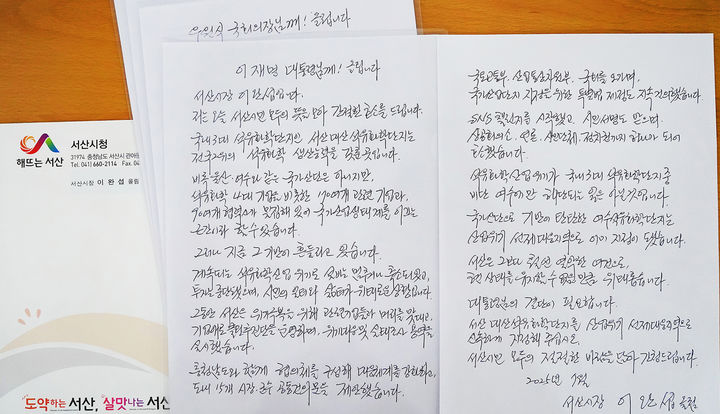 우원식 국회의장님께! 올립니다
이재명 대통령님께! 올립니다
서산시장 이완섭입니다.
저는 오늘 서산시민 모두의 뜻을 모아 간절한 호소를 드립니다.
국내 3대 석유화학단지인 서산 대산석유화학단지는
전국 2위의 석유화학 생산능력을 갖춘 곳입니다.
비록 울산 여수와 같은 국가산단은 아니지만,
석유화학 4대 기업을 비롯한 70여개 관련 기업과,
90여개 협력소가 밀집해 있어 국가산업 실태계를 이끄는
근간이라 할 수 있습니다.
그러나 지금 그 기반이 흔들리고 있습니다.
계속되는 석유화학산업 위기로 설비는 멈추거나 축소되었고,
투자는 중단됐으며, 시민의 일터와 삶터가 위태로운 상황입니다.
그동안 서산은 위기극복을 위해 관련기업들과 머리를 맞대고,
기업애로 출장전담반을 운영하며, 위기대응 및 실태조사 용역을
실시했습니다.
충청남도와 함께 협의체를 구성해 대응체계를 강화하고,
도내 15개 시장·군수 공동건의문을 제안했습니다.
국토교통부, 산업통상자원부, 국회를 오가며,
국가산업단지 지정을 위한 특별법 제정도 지속 건의했습니다.
SNS 챌린지를 시작했고, 시민서명도 받으며,
상공회의소, 언론, 시민단체, 정치권까지 하나가 되어
호소했습니다.
석유화학산업 위기가 국내 3대 석유화학단지 중
비단 여수에만 해당되는 일은 아닐 것입니다.
국가산단으로 기반이 탄탄한 여수석유화학단지는
산업위기 선제대응지역으로 이미 지정이 됐습니다.
서산은 그보다 훨씬 열악한 여건으로,
현 상태를 유지할 수 없을 만큼 위태롭습니다.
대통령님의 결단이 필요합니다.
서산 대산석유화학단지를 산업위기 선제대응지역으로
신속하게 지정해 주십시오.
서산시민 모두의 절절한 바람을 담아 간청드립니다.
2025년 7월
서산시장 이완섭 올림
해뜨는 서산
서산시청
31974 충청남도 서산시 관아문
Tel. 041) 660-2114 Fax. 04
서산시장 이 완 섭 올림
도약하는 서산, 살맛나는 서산